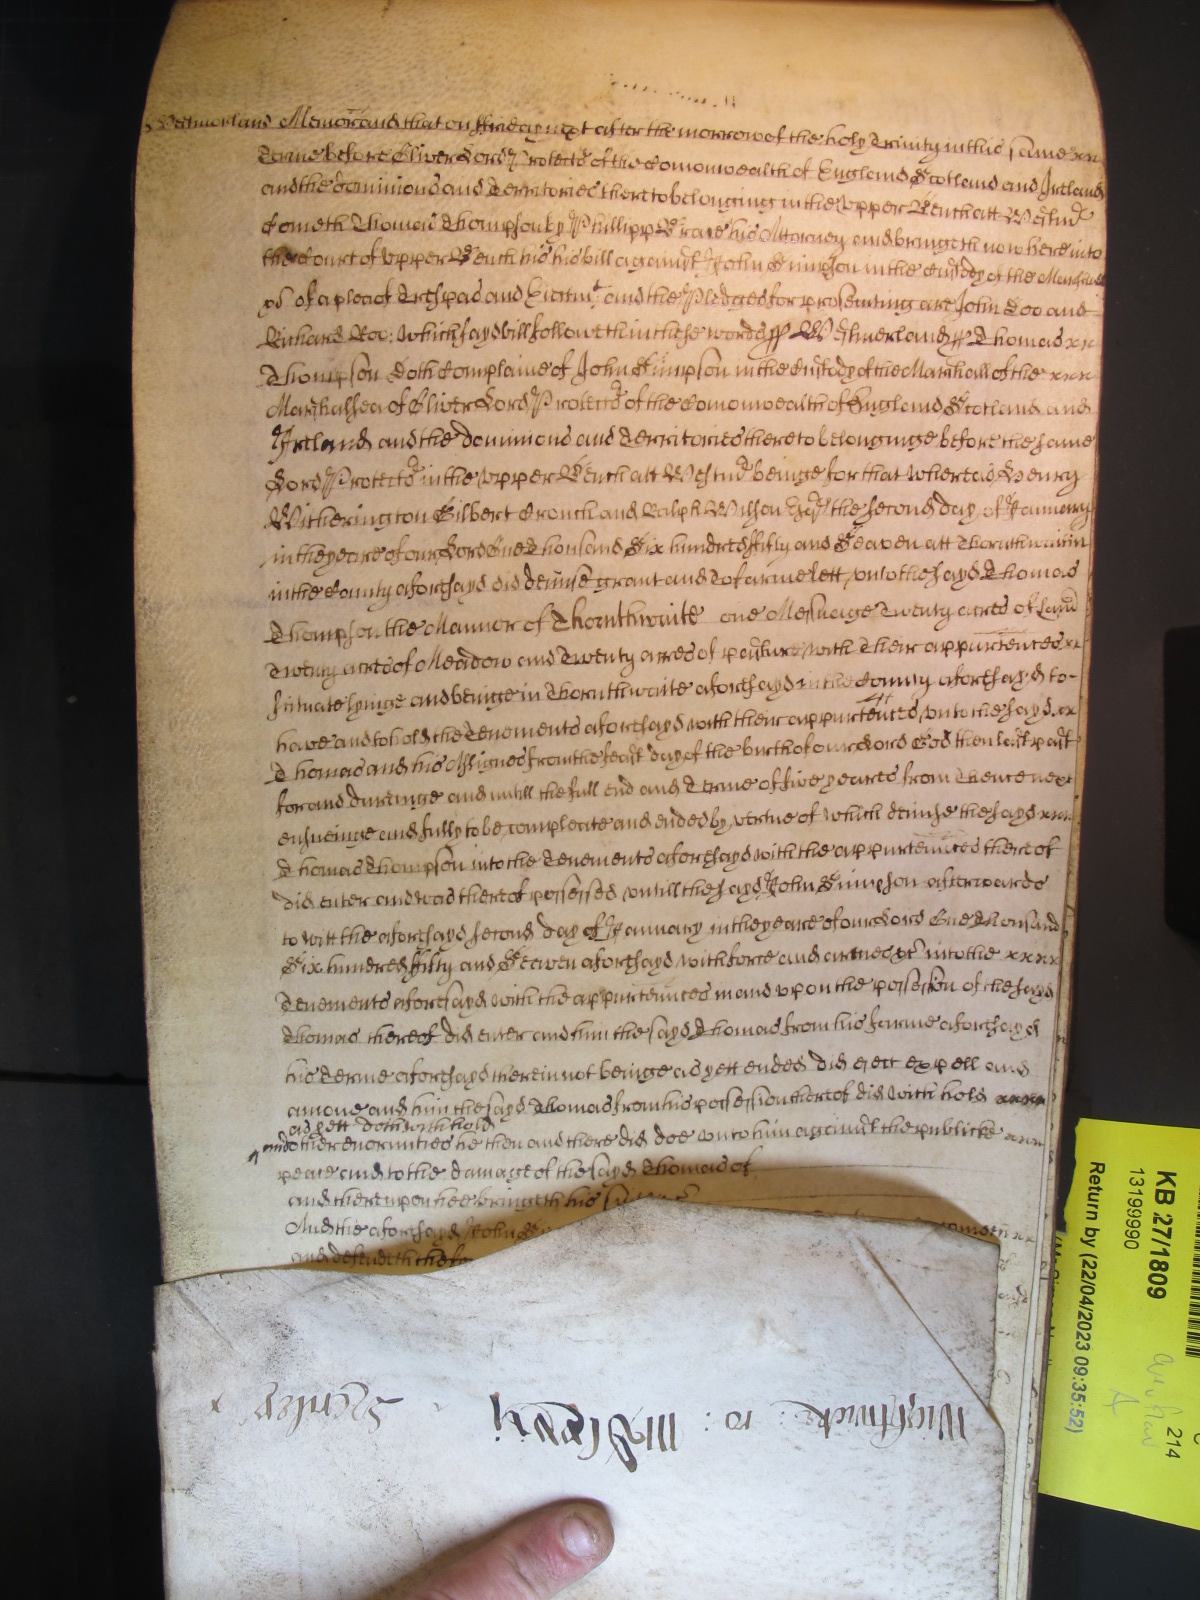 Westmorland Memorand that on ffriday next after the morrow of the holy Trinity in this same
Terme before Oliver Lord Protector of the Comonwealth of England Scotland and Ireland
and the dominions and Territories thereto belonging in the Upper Bench att Westmr
Cometh Thomas Thompson by Phillipp his Attorney and bringeth now here into
the Court of Upper Bench his his bill against John Simpson in the Custody of the Marshall
of a plea of Trespas and Eiectmt and the Pledges for prosecuting are John Doo and
Richard Roo: Which sayd bill followeth in these words ss Westmerland ss Thomas
Thompson doth Complaine of John Simpson in the Custody of the Marshall of the
Marshalsea of Oliver Lord Protector of the Comonwealth of England Scotland and
Ireland and the dominions and Territories thereto belonginge before the same
Lord Protector in the Upper Bench att Westmr beinge for that Whereas Henry
Witherington Gilbert Crouch and Ralph Wilson Esqrs the second day of January
in the yeare of our Lord One Thousand Six hundred ffifty and Seaven att Thornthwaite
in the County aforesayd did demise grant and to farme lett unto the sayd Thomas
Thompson the Mannor of Thornthwaite one Messuage Twenty acres of Land
Twenty acres of Meadow and Twenty acres of pasture with Their appurtences
scituate lyinge and beinge in Thornthwaite aforesayd in the County aforesayd to
have and to hold the Tenements aforesayd with their appurtences unto the sayd
Thomas and his Assignes from the feast day of the birth of our Lord God then last past
for and duringe and untill the full end and Terme of five yeares from Thence next
ensueinge and fully to be compleate and ended by vertue of Which demise the sayd
Thomas Thompson into the Tenements aforesayd with the appurtences thereof
did enter and was thereof possessed untill the sayd John Simpson afterwards
to witt the aforesayd second day of January in the yeare of our Lord One Thousand
Six hundred ffifty and Seaven aforesayd with force and armes &c into the
Tenements aforesayd with the appurtences in and upon the possession of the sayd
Thomas thereof did enter and him the sayd Thomas from his farme aforesayd
his Terme aforesayd therein not beinge as yett ended did eject expell and
amove and him the sayd Thomas from his possession thereof did with hold
as yett doth with hold
and other enormities he then and there did doe unto him against the publicke
peace and to the damage of the sayd Thomas of
and thereupon hee bringeth his
And the aforesayd John cometh
and defendeth the
Wightwicke: ro: III
KB 27/1809
13199990
Return by (22/04/2023 09:35:52)
214